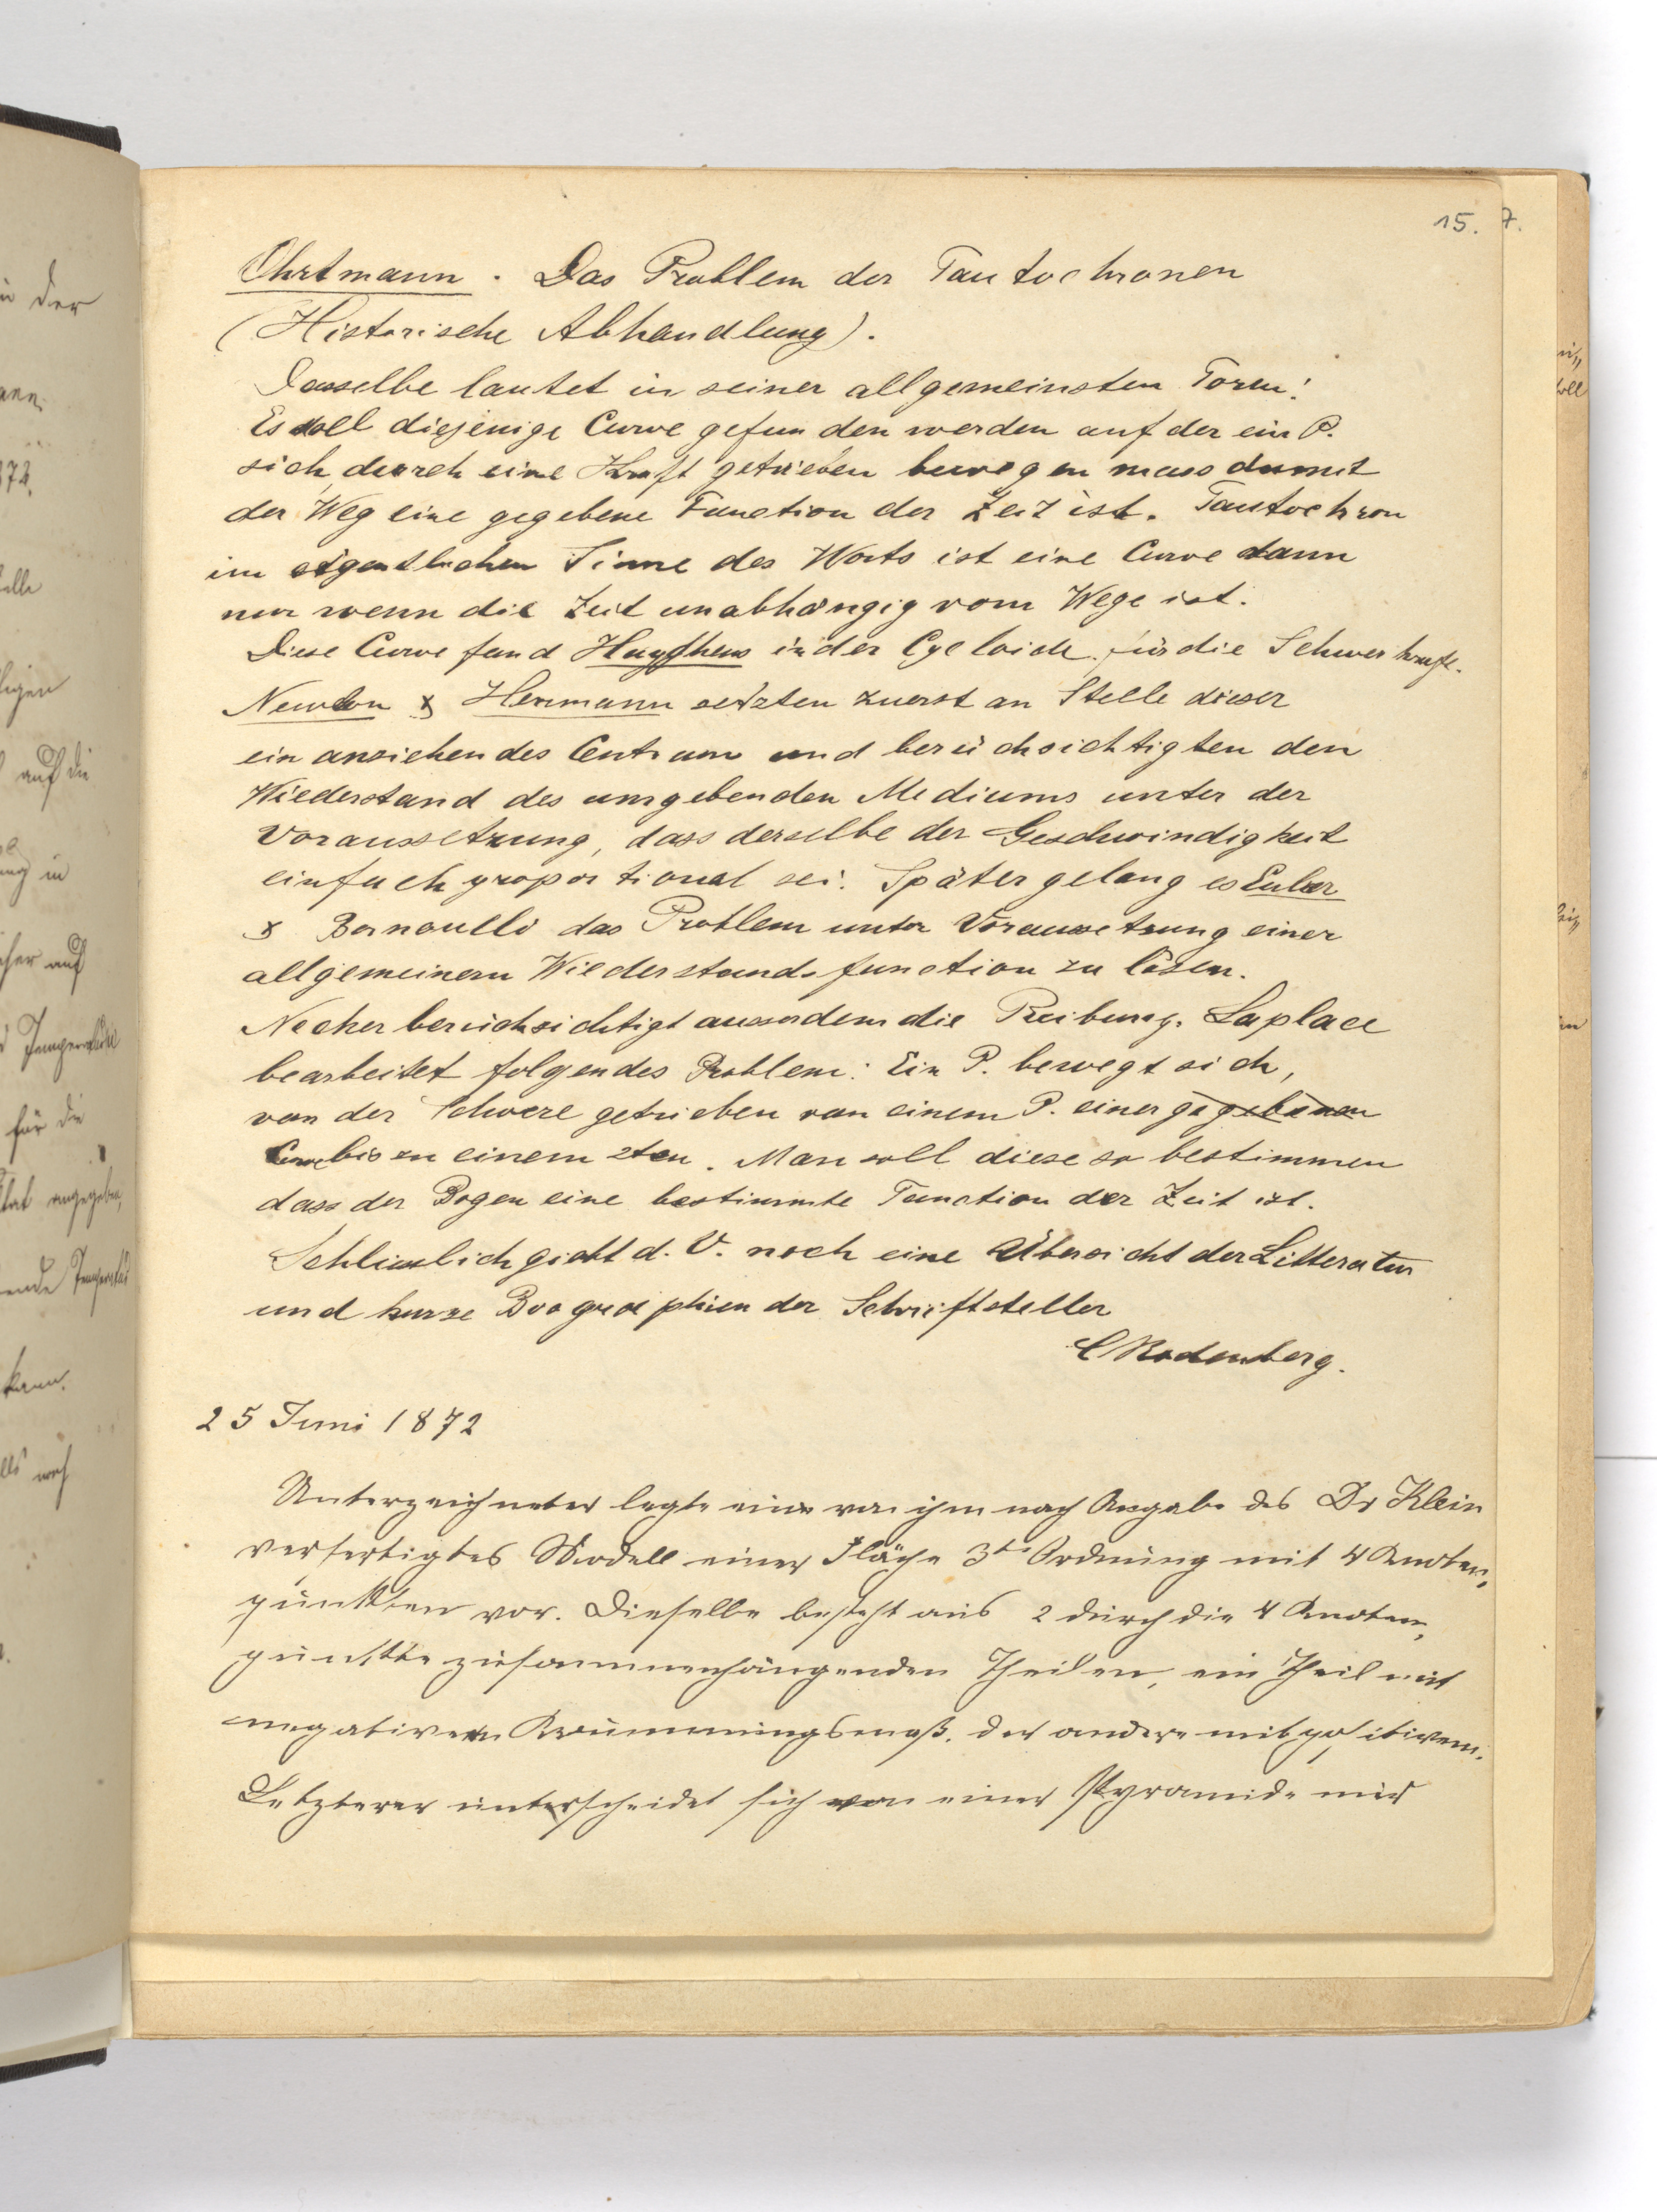 15. 7.
Ohrtmann. Das Problem der Tautochronen
(Historische Abhandlung).
Dasselbe lautet in seiner allgemeinsten Form:
Es soll diejenige Curve gefunden werden auf der ein P.
sich durch eine Kraft getrieben bewegen muss damit
der Weg eine gegebene Function der Zeit ist. Tautochron
im eigentlichen Sinne des Worts ist eine Curve dann
nur wenn die Zeit unabhängig vom Wege ist.
Diese Curve fand Huyghens in der Cycloide für die Schwerkraft.
Newton & Hermann setzten zuerst an Stelle dieser
ein anziehendes Centrum und berücksichtigten den
Wiederstand des umgebenden Mediums unter der
Voraussetzung, dass derselbe der Geschwindigkeit
einfach proportional sei. Später gelang es Euler
& Bernoulli das Problem unter Voraussetzung einer
allgemeinern Wiederstandsfunction zu lösen.
Necker berücksichtigt ausserdem die Reibung. Laplace
bearbeitet folgendes Problem: Ein P. bewegt sich,
von der Schwere getrieben von einem P. einer gegebenen
Curve bis zu einem 2ten. Man soll diese so bestimmen
dass der Bogen eine bestimmte Function der Zeit ist.
Schliesslich giebt d. V. noch eine Übersicht der Litteratur
und kurze Biographien der Schriftsteller
C Rodenberg.
25 Juni 1872
Unterzeichneter legte ein von ihm nach Angabe des Dr Klein
verfertigtes Modell einer Fläche 3ter Ordnung mit 4 Knoten-
punkten vor. Dieselbe besteht aus 2 durch die 4 Knoten-
punkte zusammenhängenden Theilen, ein Theil mit
negativem Krümmungsmaß, der andere mit positivem.
Letzterer unterscheidet sich von einer Pyramide nur